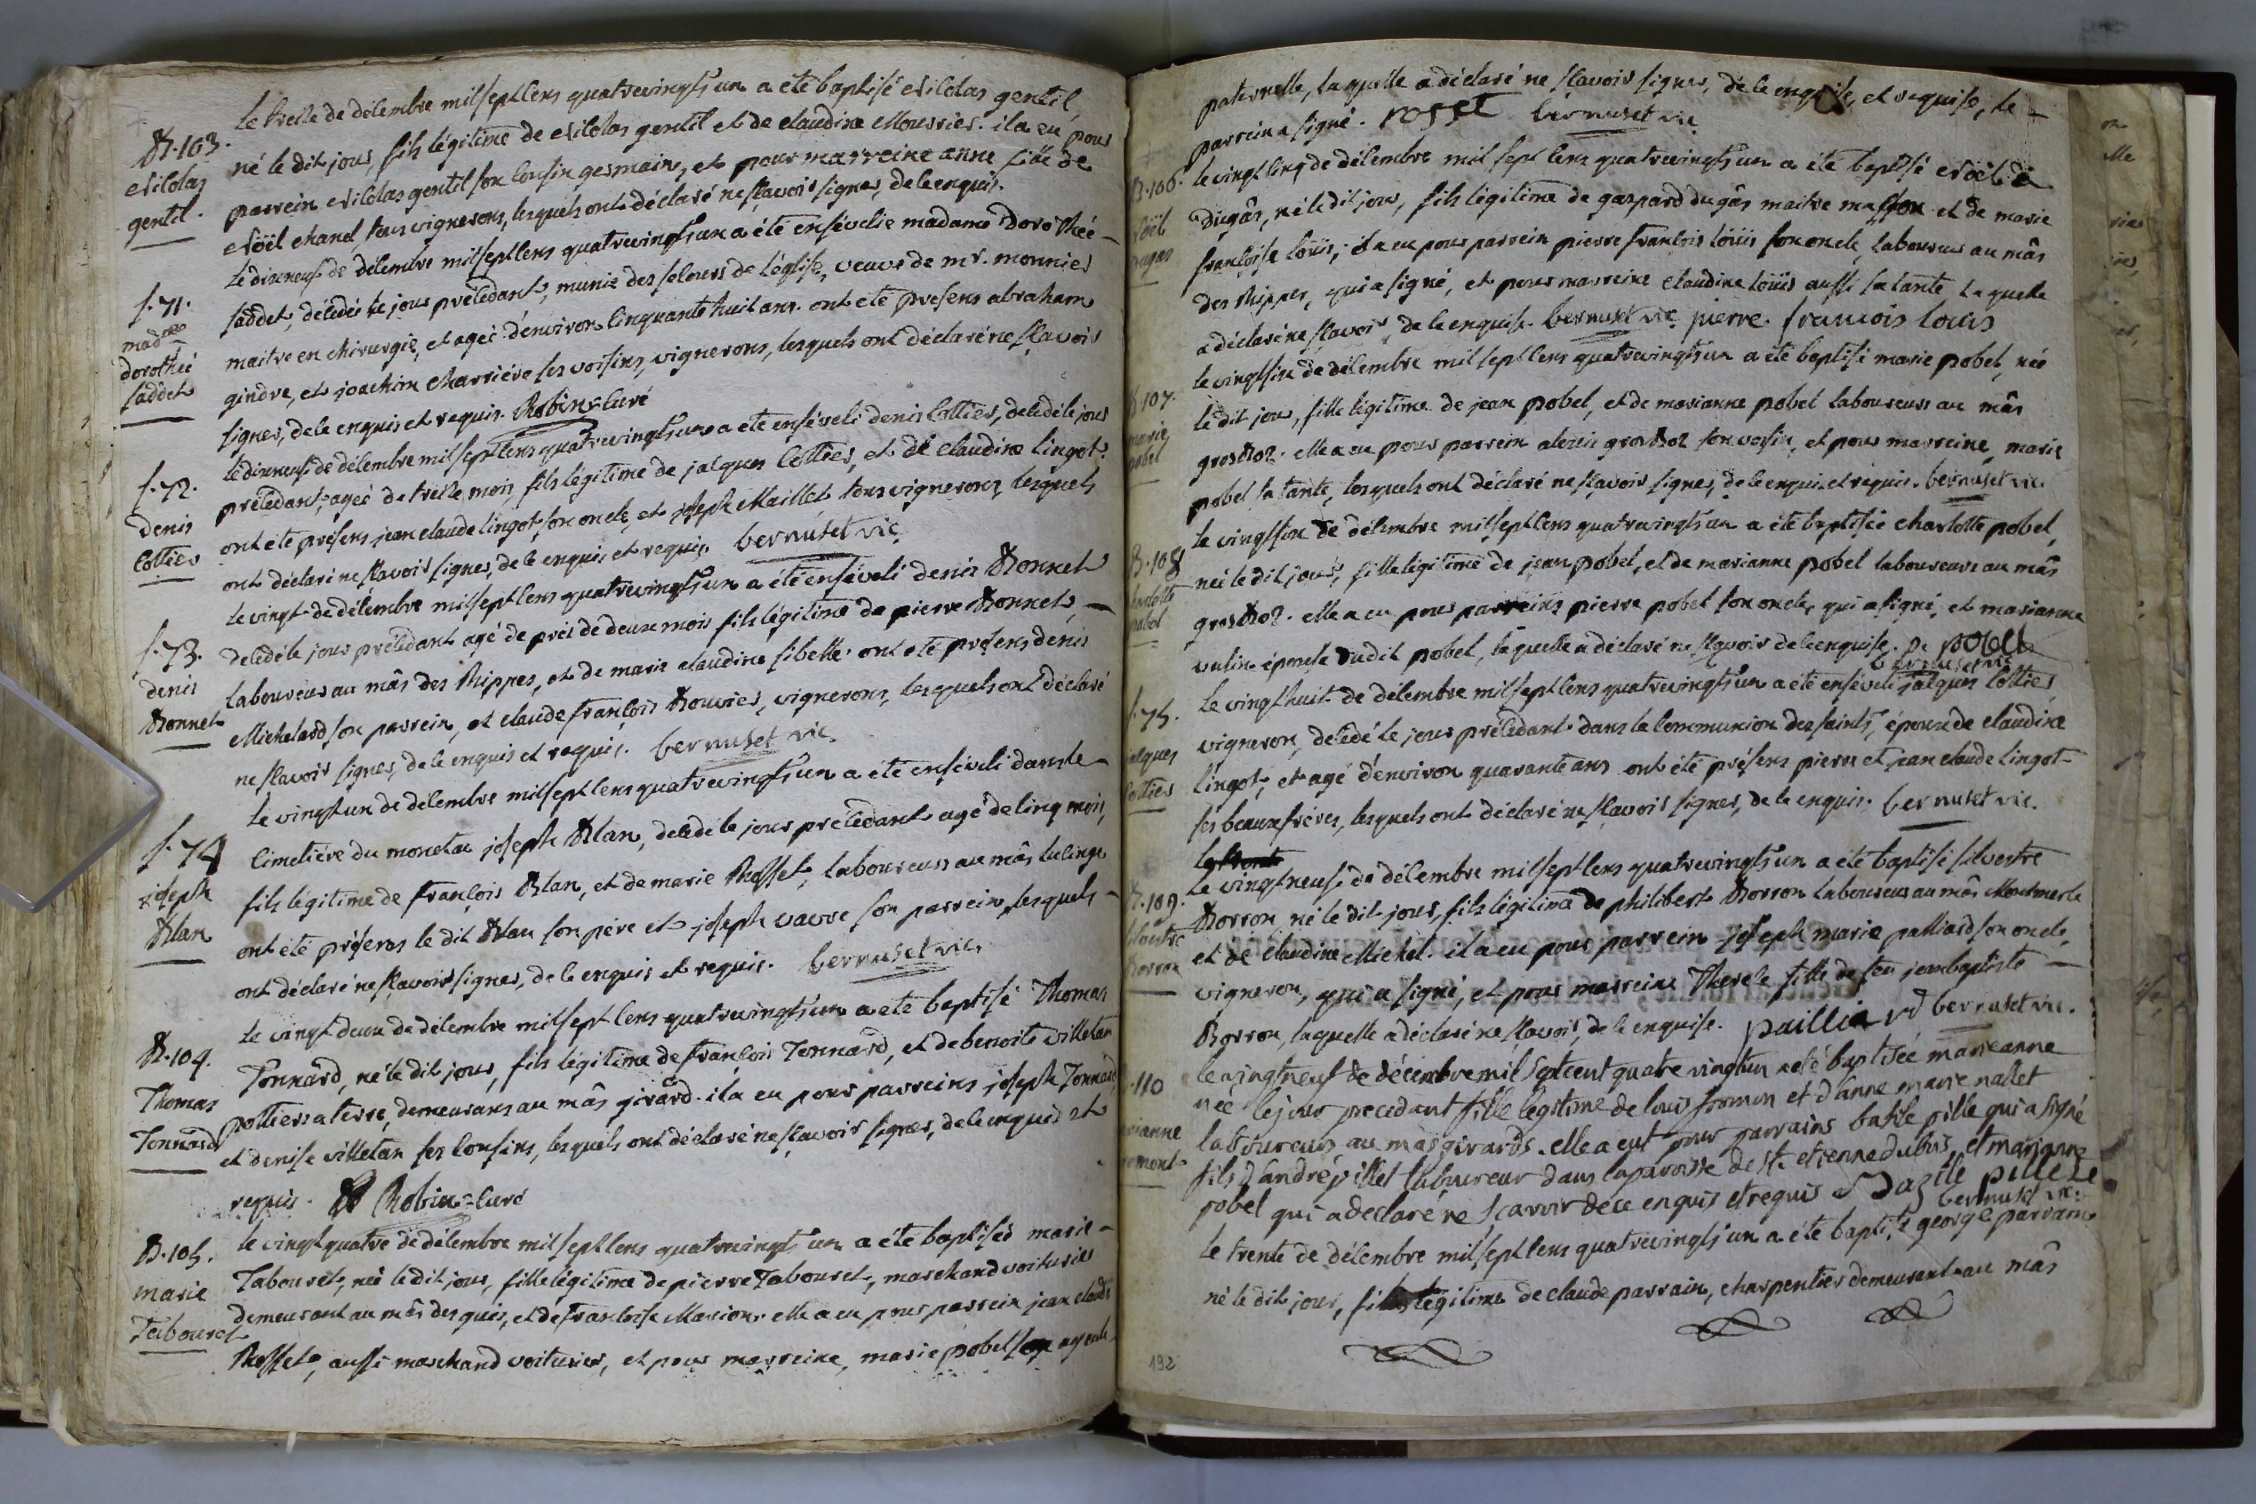 B. 103.
Nicolas
gentil.
Le treize de décembre mil sept cens quatrevingts un a été baptisé Nicolas gentil,
né le dit jour, fils légitime de Nicolas gentil et de claudine Mourier. il a eu pour
parrein Nicolas gentil son cousin germain, et pour marreine anne fille de
Noël chanel tous vignerons, lesquels ont déclaré ne sçavoir signer, de ce enquis.
S. 71.
mad.e
dorothée
saddet
Le dixneuf de décembre mil sept cens quatrevingts un a été ensévelie madame Dorothée
saddet, décédée le jour précédant, munie des secours de l'église, veuve de mr. monnier
maitre en chirurgie, et agée d'environ cinquante huit ans. ont été presens abraham
gindre, et joachim charriére ses voisins, vignerons, lesquels ont déclaré ne sçavoir
signer, de ce enquis et requis. Robin curé
S. 72.
denis
Cottier
Le dixneuf de décembre mil sept cens quatrevingts un a été enséveli denis Cottier, décédé le jour
précédant, agée de treize mois, fils légitime de jacques Cottier, et de claudine lingot.
ont été présens jean claude lingot, son oncle, et joseph Maillet tous vignerons, lesquels
ont déclaré ne sçavoir signer, de ce enquis et requis. bernuset vic.
S. 73.
denis
Bonnet
Le vingt de décembre mil sept cens quatrevingts un a été enséveli denis Bonnet
décédé le jour précédant agé de près de deux mois fils légitime de pierre Bonnet,
laboureur au mâs des Rippes, et de marie claudine sibelle. ont été présens denis
Michelard son parrein, et claude françois Bouvier, vignerons, lesquels ont déclaré
ne sçavoir signer, de ce enquis et requis. bernuset vic.
S. 74
joseph
Blan
Le vingt un de décembre mil sept cens quatrevingts un a été enséveli dans le
Cimetiére du monetai joseph Blan, décédé le jour précédant agé de cinq mois,
fils légitime de françois Blan, et de marie Rosset, laboureurs au mâs
ont été présens le dit Blan son pére et joseph vavre son parrein, lesquels
ont déclaré ne sçavoir signer, de ce enquis et requis. bernuset vic.
B. 104.
Thomas
Tonnard
Le vingt deux de décembre mil sept cens quatrevingts un a été baptisé Thomas
Tonnard, né le dit jour, fils légitime de françois Tonnard, et de benoite villetan
pottiers a terre, demeurans au mâs girard. il a eu pour parreins joseph Tonnard
et denise villetan ses cousins, lesquels ont déclaré ne sçavoir signer, de ce enquis et
requis. Robin curé
B. 105.
marie
Tabouret
Le vingt quatre de décembre mil sept cens quatrevingts un a été baptisée marie
Tabouret, née le dit jour, fille légitime de pierre Tabouret, marchand voiturier
demeurant au mâs des guis, et de françoise Marion. elle a eu pour parrein jean claude
Rosset, aussi marchand voiturier, et pour marreine, marie pobel son ayeule
paternelle, laquelle a déclaré ne sçavoir signer, de ce enquise, et requise, le
parrein a signé. rosset bernuset vic
B. 106.
Noël
dugas
Le vingt cinq de décembre mil sept cens quatrevingts un a été baptisé Noël
Dugâs, né le dit jour, fils légitime de gaspard dugâs maitre masson et de marie
françoise loüis; il a eu pour parrein pierre françois loüis son oncle, laboureur au mâs
des Rippes, qui a signé, et pour marreine claudine loüis aussi sa tante laquelle
a déclaré ne sçavoir, de ce enquise. bernuset vic. pierre. francois louis
B 107.
marie
pobel
Le vingt six de décembre mil sept cens quatrevingts un a été baptisé marie pobel, née
le dit jour, fille légitime de jean pobel, et de marianne pobel laboureurs au mâs
grosBoz. elle a eu pour parrein alexis grosBoz son voisin, et pour marreine, marie
pobel sa tante, lesquels ont déclaré ne sçavoir signer, de ce enquis et requis. bernuset vic.
B. 108
charlotte
pobel
Le vingt six de décembre mil sept cens quatrevingts un a été baptisée charlotte pobel,
née le dit jour, fille légitime de jean pobel, et de marianne pobel laboureurs au mâs
grosBoz. elle a eu pour parreins pierre pobel son oncle, qui a signé, et marianne
vulin épouse dudit pobel, laquelle a déclaré ne sçavoir de ce enquise. P. pobel
bernuset vic
S. 75.
jacques
Cottier
Le vingt huit de décembre mil sept cens quatrevingts un a été enséveli jacques Cottier
vigneron, décédé le jour précédant dans la Communion des saints, époux de claudine
lingot, et agé d'environ quarante ans ont été présens pierre et jean claude lingot
ses beaux fréres, lesquels ont déclaré ne sçavoir signer, de ce enquis. bernuset vic.
Le trente
B. 109.
silvestre
Borron
Le vingt neuf de décembre mil sept cens quatrevingts un a été baptisé silvestre
Borron né le dit jour, fils légitime de philibert Borron laboureur au mâs
et de claudine Michel. il a eu pour parrein joseph marie palliard son oncle,
vigneron, qui a signé, et pour marreine Therese fille de feu jean baptiste
Borron, laquelle a déclaré ne sçavoir, de ce enquise. pailliard bernuset vic.
110
marianne
fromont
le vingtneuf de décembre mil septcent quatre vingtun a été baptisée marieanne
née le jour precedant fille legitime de louis fromon et d'anne marie nallet
laboureurs au mas girards. elle a eut pour parrains basile pille qui a signé
fils d'andré pillet laboureur dans la paroisse de st. etienne du bois, et marianne
pobel qui a declaré ne scavoir de ce enquis et requis Bazile pillet
bernuset vic.
Le trente de décembre mil sept cens quatrevingts un a été baptisé george parrain
né le dit jour, fils légitime de claude parrain, charpentier demeurant au mâs
192